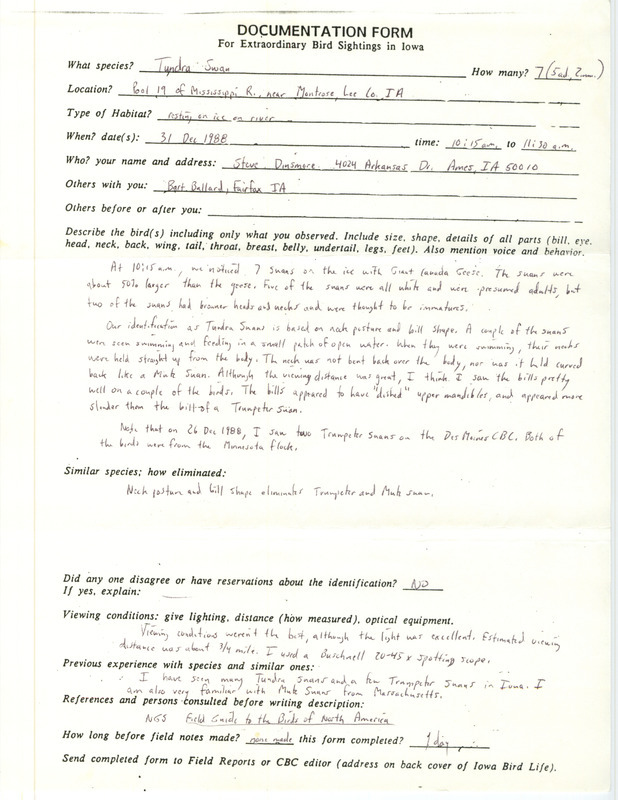 DOCUMENTATION FORM
For Extraordinary Bird Sightings in Iowa
What species? Tundra Swan How many? 7 (5 ad, 2 imm.)
Location? Pool 19 of Mississippi R., near Montrose, Lee Co. IA
Type of Habitat? resting on ice on river
When? date(s): 31 Dec 1988 time: 10:15 a.m. to 11:30 a.m.
Who? your name and address: Steve Dinsmore 4024 Arkansas Dr. Ames, IA 50010
Others with you: Bart Ballard, Fairfax IA
Others before or after you:
Describe the bird(s) including only what you observed. Include size, shape, details of all parts (bill, eye,
head, neck, back, wing, tail, throat, breast, belly, undertail, legs, feet). Also mention voice and behavior.
At 10:15 a.m., we noticed 7 swans on the ice with Giant Canada Geese. The swans were
about 50% larger than the geese. Five of the swans were all white and were presumed adults, but
two of the swans had browner heads and necks and were thought to be immatures.
Our identification as Tundra Swans is based on neck posture and bill shape. A couple of the swans
were seen swimming and feeding in a small patch of open water. When they were swimming, their necks
were held straight up from the body. The neck was not bent back over the body, nor was it held curved
back like a Mute Swan. Although the viewing distance was great, I think I saw the bills pretty
well on a couple of the birds. The bills appeared to have "dished" upper mandibles, and appeared more
slender than the bill of a Trumpeter Swan.
Note that on 26 Dec 1988, I saw two Trumpeter Swans on the Des Moines CBC. Both of
the birds were from the Minnesota flock.
Similar species; how eliminated:
Neck posture and bill shape eliminates Trumpeter and Mute swan.
Did any one disagree or have reservations about the identification? NO
If yes, explain:
Viewing conditions: give lighting, distance (how measured), optical equipment.
Viewing conditions weren't the best, although the light was excellent. Estimated viewing
distance was about 3/4 mile. I used a Buschnell 20-45x spotting scope.
Previous experience with species and similar ones:
I have seen many Tundra Swans and a few Trumpeter Swans in Iowa. I
am also very familiar with Mute Swans from Massachusetts.
References and persons consulted before writing description:
NGS Field Guide to the Birds of North America
How long before field notes made? none made this form completed? 1 day
Send completed form to Field Reports or CBC editor (address on back cover of Iowa Bird Life).